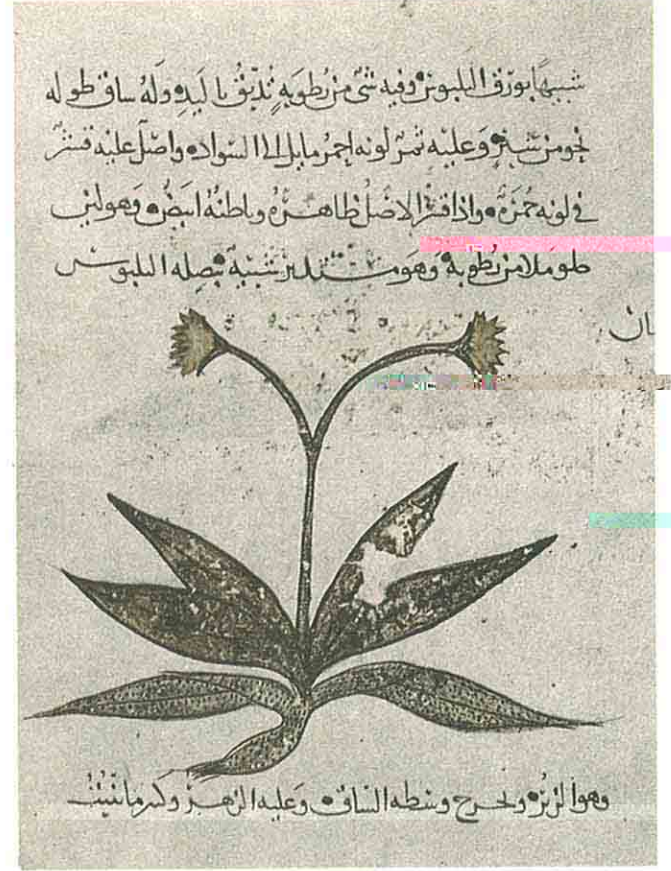 شبيهًا بورق البلبوس وفيه شئ من رُطوبَةٍ تُدَبّقُ باليَدِ وَلَهُ ساق طوله
نحو من شبرٍ وَعَليْه ثمرٌ لونه احمرُ مايل الى السواد واصْل عليْه قشرٌ
في لونه حُمرَةٌ واذا قشر الاصْلُ ظاهرُهُ وباطنهُ ابيَضُ وَهو لين
حلو ملا من رُطوبة وَهوَ مستدير شبيهٌ ببصلة البلبوس
ان
وهوا ويخرج وسطه الساق وعليه الزهر